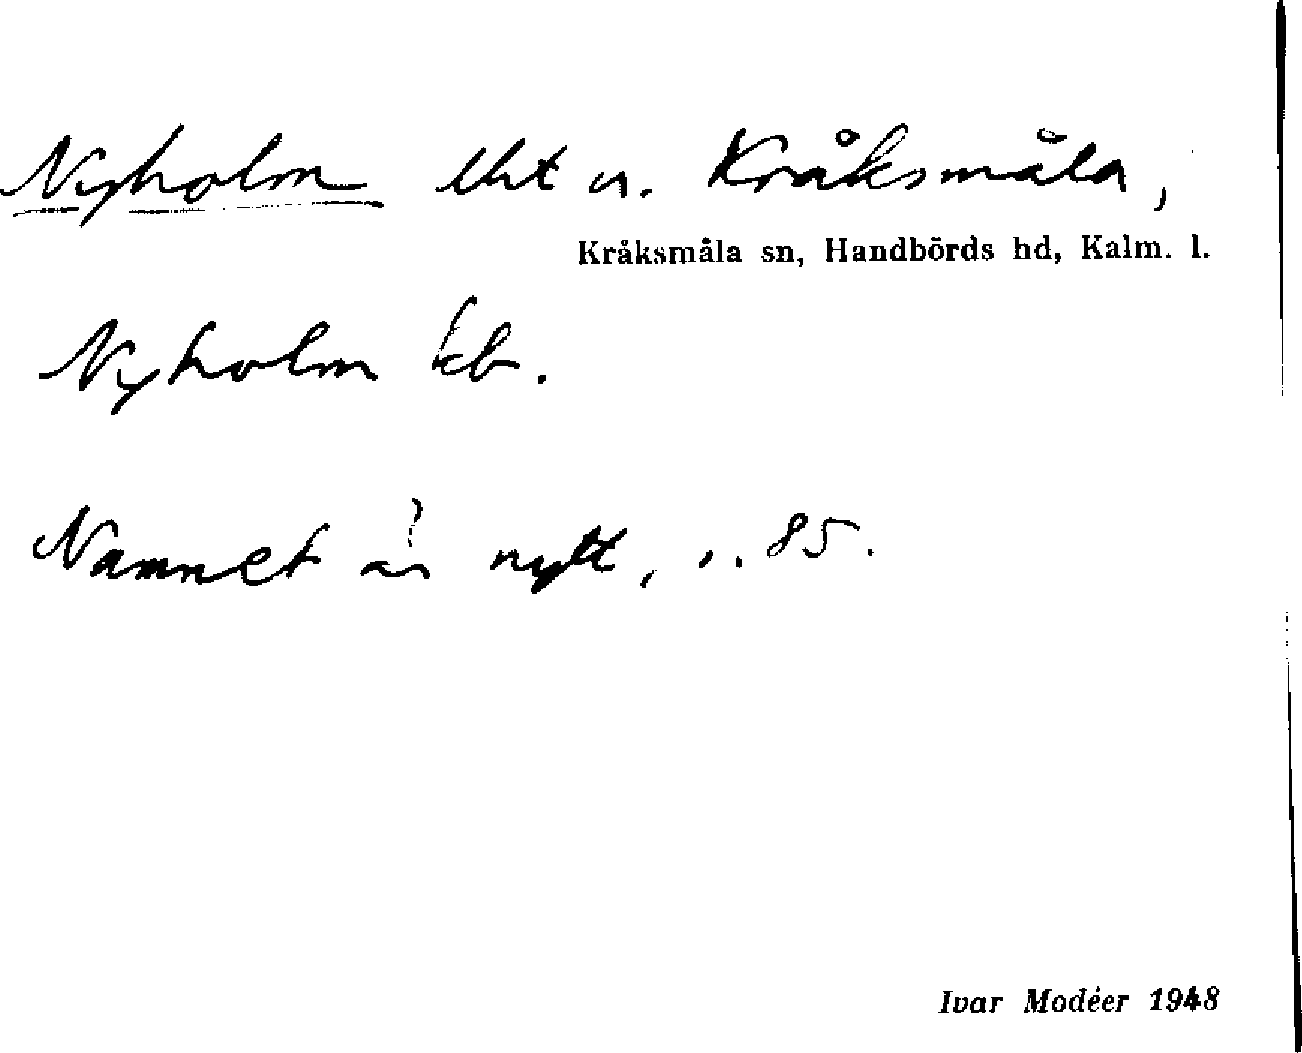 Nyholm lht u. Kråksmåla,
Kråksmåla sn, Handbörds hd, Kalm. l.
Nyholm kb.
Namnet är nytt, s. 85.
Ivar Modéer 1948